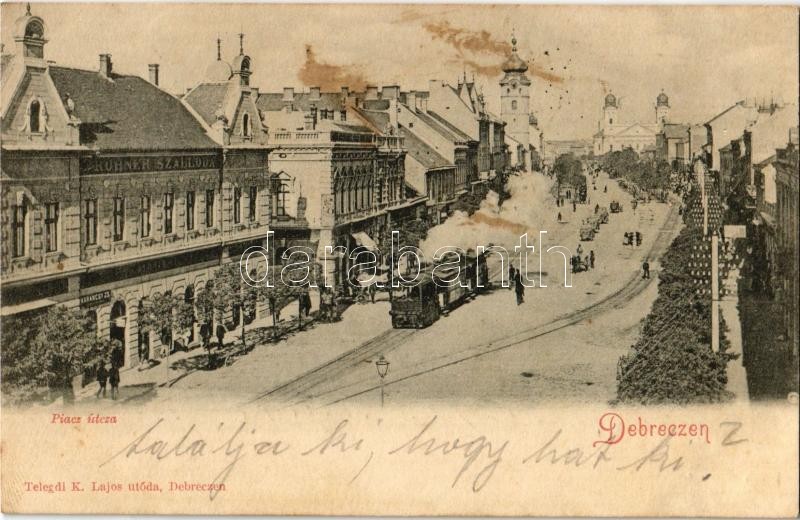 KOHNER SZÁLLODA
HARANGGYZS
darabanth.com
Piacz útcza
Debreczen
találja ki, hogy hat ki.
Telegdi K. Lajos utóda, Debreczen